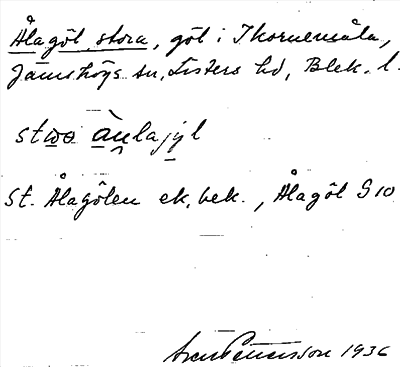 Ålagöl stora, göl i Tkornemåla,
Jämshögs sn, Listers hd, Blek. l.
stωα àu̯lajy̱l
St. Ålagölen ek. bek., Ålagöl S 10
Pettersson 1936